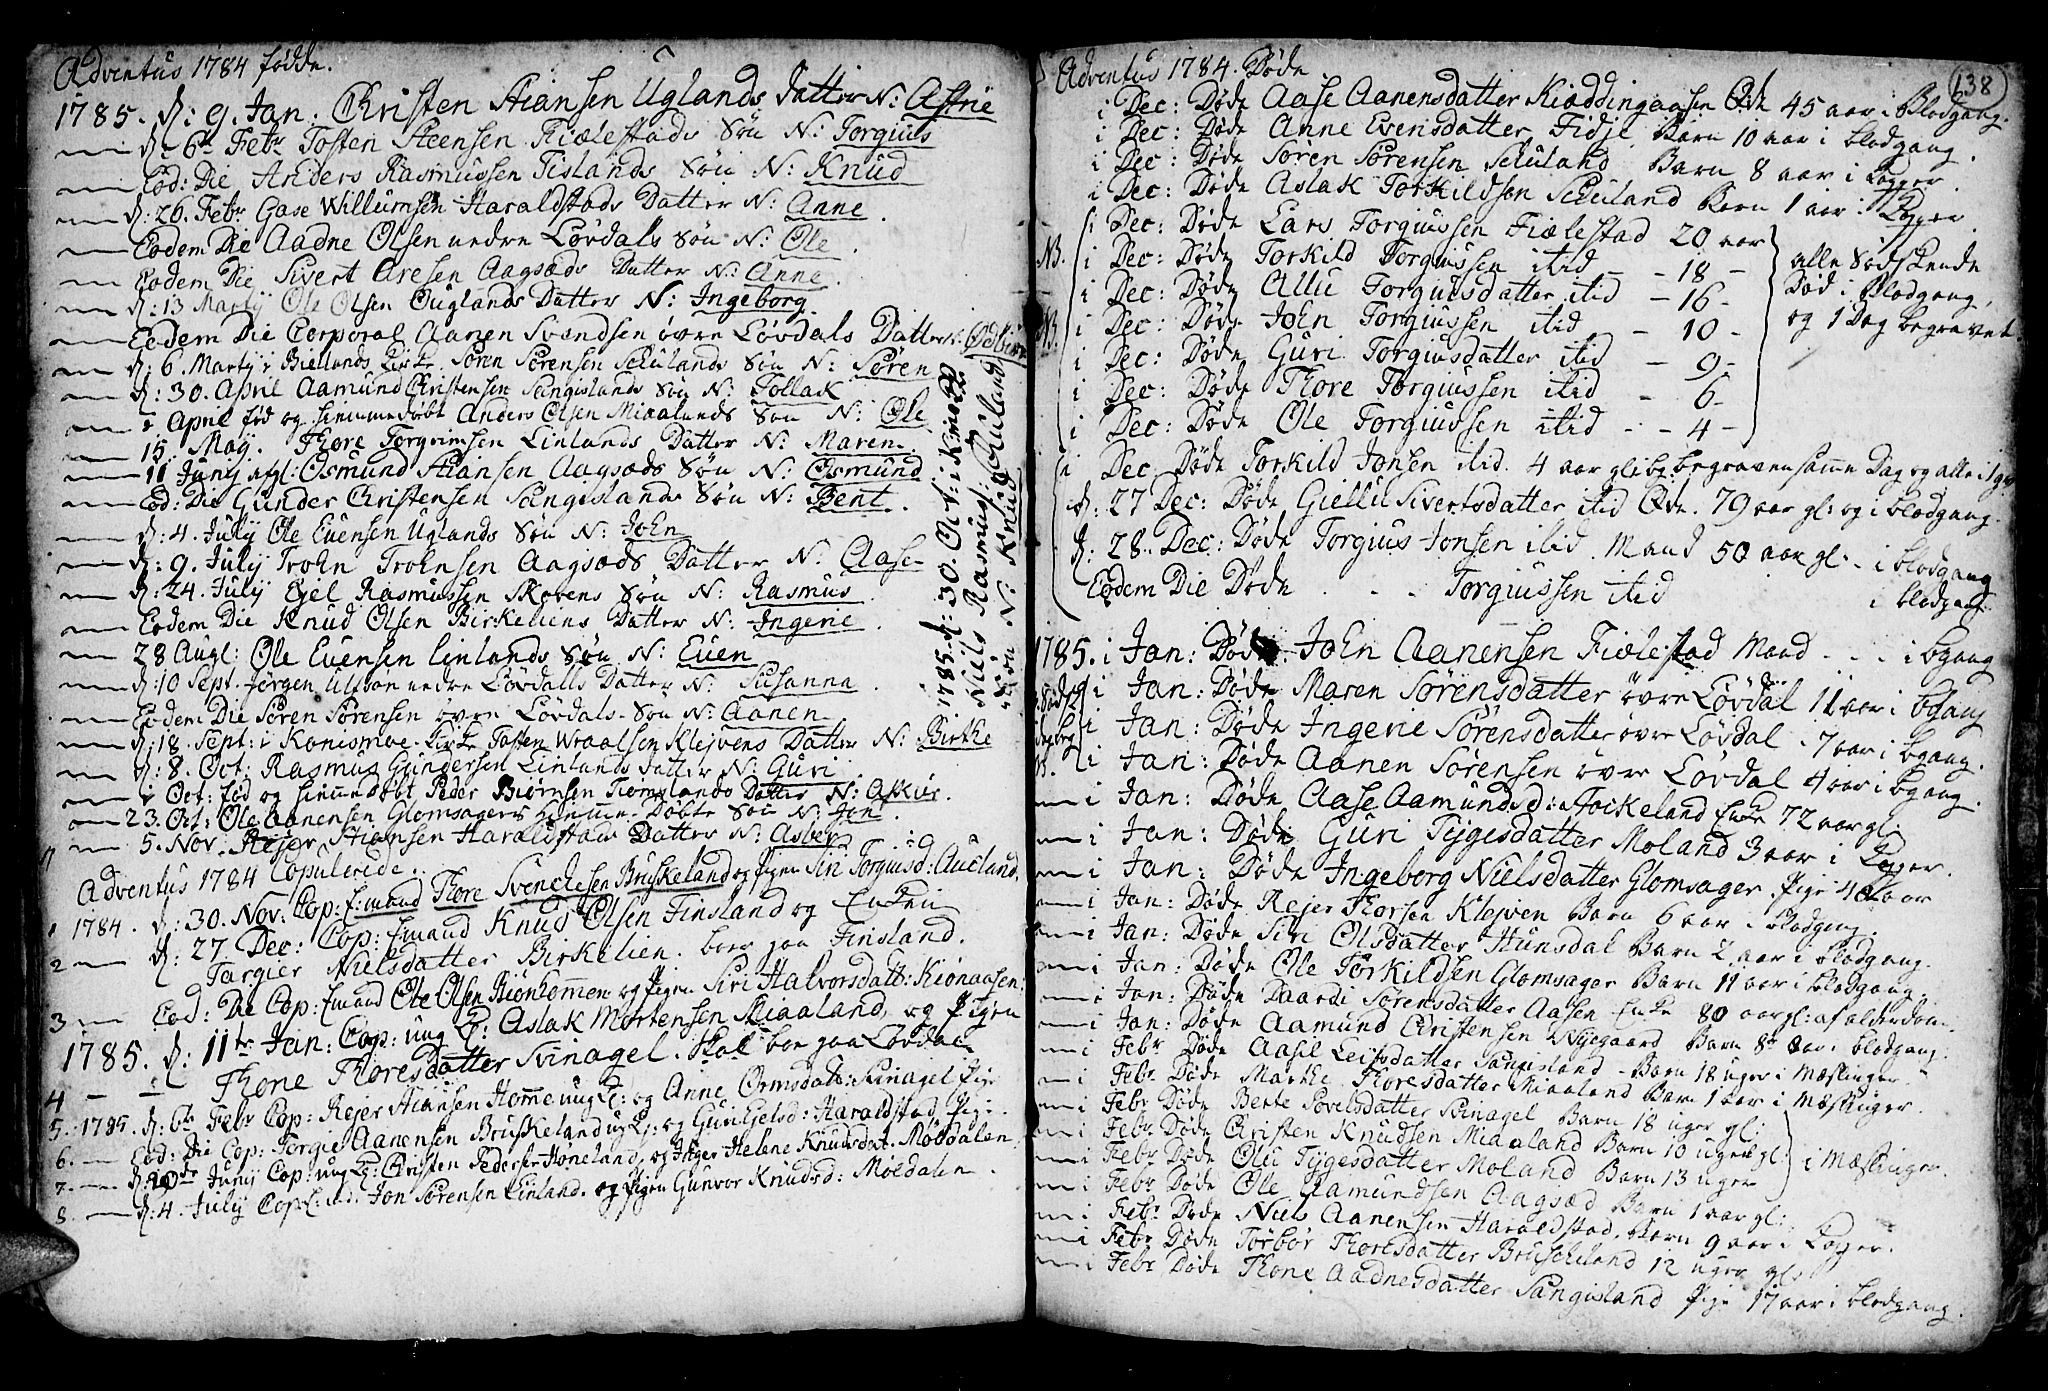 Adventus 1784 fødde.
1785. d: 9. Jan: Christen Stiansen Uglands Datter N: Astrie
d: 6te Febr Tosten Steensen Fiælestads Søn N: Torgius
Eod: Die Anders Rasmussen Tislands Søn N: Knud
d: 26. Febr Gase Willumsen Haraldstads Datter N: Anne.
Eodem Die Aadne Olsen nedre Løvdals Søn N: Ole.
Eodem Die Sivert Aresen Aagsæds Datter N: Anne.
d: 13 Martÿ Ole Olsen Øuglands Datter N: Ingeborg.
Eodem Die Corporal Aanen Svendsen øvre Løvdals Datter N:
d: 6. Martÿ i Bielands Kirke Søren Sørensen Schulands Søn N: Søren
d: 30. April Aamund Christensen Sangislands Søn N: Tollak
i April fød og hiemmedøbt Anders Olsen Miaalands Søn N: Ole
15. May. Thore Torgrimsen Linlands Datter N: Maren.
11 Junÿ afgl: Osmund Stiansen Aagsæds Søn N: Osmund
Eod: Die Gunder Christensen Sangislands Søn N: Bent.
d: 4. Julÿ Ole Evensen Uglands Søn N: John
d: 9. Julÿ Trohn Trohnsen Aagsæds Datter N: Aase
d: 24. Julÿ Ejel Rasmussen Skovens Søn N: Rasmus
Eodem Die Knud Olsen Birkeliens Datter N: Ingerie.
28 Augl: Ole Evensen Linlands Søn N: Even
d: 10 Sept. Jørgen Ulfson nedre Løvdalls Datter N: Susanna.
Eodem Die Søren Sørensen øvre Løvdals Søn N: Aanen
d: 18. Sept: i Konismoe Kirke Tosten Wraalsen Klejvens Datter N: Birthe
d: 8. Oct: Rasmus Gundersen Linlands Datter N: Guri
i Oct: fød og hiemmedøbt Peder Biørnsen Datter N:
23. Oct: Ole Aanensen Glomsagers hiemme Døbte Søn N: Jon.
5. Nov. Rejer Stiansen Haraldstads Datter N: Asber
1785. d: 30. Oct: i
Niels Rasmus:
Søn N: Knud
Adventus 1784 Copulerede.
1 1784. d: 30. Nov: Cop: Emand Thore Svenchesen Bruskeland og Pigen Siri Torgiusd: Aucland.
2 d: 27 Dec: Cop: Emand Knud Olsen Finsland og Enken
Targier Nielsdatter Birkelien. boer paa Finsland.
3 Eod: Die Cop: Emand Ole Olsen og Pigen Siri Halvorsdatt: Kiønaasen:
1785. d: 11te Jan: Cop: ung K: Aslak Mortensen Miaaland, og Pigen
4 Thone Thoresdatter Svinagel. Skal boe paa Løvdal
5. 1785. d: 6te Febr Cop: Rejer Stiansen Homme ung K: og Anne Ormsdatt: Svinagel Pige
6. Eod: Die Cop: Torgie Aanensen Bruskeland ung K: og Guri Ejelsd: Haraldstad Pige.
7. Junÿ Cop: ung K: Christen Pedersen Høneland, og Helene Knudsdat. Møbdalen
8. d: 4. Julÿ Cop: Jon Sørensen Linland. og Pigen Gunvor Knudsd: Moeldalen.
138
Adventus 1784. Døde
i Dec: Døde Aase Aanensdatter Kiæddingaasen Qde 45 aar i Blodgang.
i Dec: Døde Anne Evensdatter Fidje Barn 10 aar i blodgang.
i Dec: Døde Søren Sørensen Schuland Barn 8 aar i Kopper
i Dec: Døde Aslak Torkildsen Schuland Barn 1 aar i Kopper.
i Dec: Døde Lars Torgiussen Fiælestad 20 aar
NB. i Dec: Døde Torkild Torgiussen itid - 18 -
i Dec: Døde Allu Torgiusdatter itid - 16 -
i Dec: Døde John Torgiussen itid - 10 -
i Dec: Døde Guri Torgiusdatter itid - 9 -
i Dec: Døde Thore Torgiussen itid - 6 -
i Dec: Døde Ole Torgiussen itid - 4 -
alle Sødskende
Død i Blodgang,
og 1 Dag begravet.
i Dec Døde Torkild Jonsen itid. 4 aar begraven samme Dag og alle i 1
d: 27 Dec: Døde Giellu Sivertsdatter itid Qde. 79 aar gl: og i blodgang.
d: 28. Dec: Døde Torgius Jonsen itid. Mand 50 aar gl: i blodgang
Eodem Die Døde Torgiussen itid i blodgang.
1785. i Jan: Døde John Aanensen Fiælestad Mand - - - i bgang
i Jan: Døde Maren Sørensdatter øvre Løvdal 11 aar i bgang
i Jan: Døde Ingerie Sørensdatter øvre Løvdal 7 aar i bgang.
i Jan: Døde Aanen Sørensen øvre Løvdal 4 aar i bgang.
i Jan: Døde Aase Aamundsd: Stockeland Enke 72 aar gl:
i Jan: Døde Guri Tÿgesdatter Moland 3 aar i Kopper.
i Jan: Døde Ingeborg Nielsdatter Glomsager. Pige 40 aar
i Jan: Døde Rejer Thorsen Klejven Barn 6 aar i blodgang.
i Jan: Døde Siri Olsdatter Hunsdal Barn 2 aar i blodgang.
i Jan: Døde Ole Torkildsen Glomsager Barn 11 aar i blodgang.
i Jan: Døde Sørensdatter Aasen Enke 80 aar gl: af alderdom.
i Jan: Døde Aamund Christensen Nÿegaard Barn 8 aar i blodgang:
i Febr Døde Aasil Leifsdatter Sangisland - Barn 18 uger i Mæslinger
i Febr Døde Marthe Thoresdatter Miaaland Barn 1 aar i Mæslinger.
i Febr Døde Berte Sovelsdatter Svinagel Barn 18 uger gl:
i Febr Døde Christen Knudsen Miaaland Barn 10 uger gl:
i Febr Døde Olu Tÿgesdatter Moland Barn 13 uger
i Mæslinger.
i Febr Døde Ole Aamundsen Aagsæd Barn 1 aar gl:
i Febr Døde Niels Aanensen Haraldstad. Barn 9 aar i Kopper.
i Febr Døde Torbør Thoresdatter Bruscheland 12 uger gl:
i Febr Døde Thone Aadnesdatter Sangisland Pige 17 aar i blodgang.